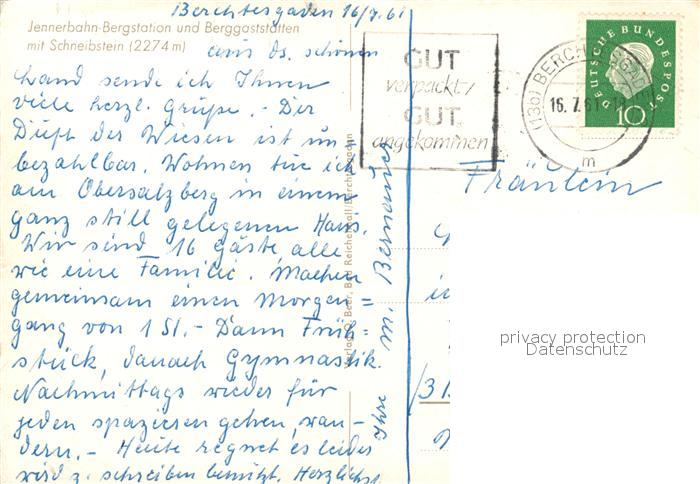 Berchtesgaden 16/7.61
Jennerbahn-Bergstation und Berggaststätten
mit Schneibstein (2274 m)
aus ds. schönen
Land sende ich Ihnen
viele herzl. Grüße. - Der
Duft der Wiesen ist un
bezahlbar. Wohnen tue ich
am Obersalzberg in einem
ganz still gelegenen Haus.
Wir sind 16 Gäste alle
wie eine Familie. Machen
gemeinsam einen Morgen=
gang von 1 St. - Dann Früh=
stück, danach Gymnastik.
Nachmittags wieder für
jeden spazieren gehen, wan-
dern. - Heute regnet es leider
wird z. schreiben benützt. Herzlichst
Ihre M. Bernauer
Verlag O. Beer, Bad Reichenhall/Berchtesgaden
GUT
verpackt/
GUT
angekommen
(13b) BERCHTESGADEN
16. 7. 61
m
DEUTSCHE BUNDESPOST
10
Fräulein
privacy protection
Datenschutz